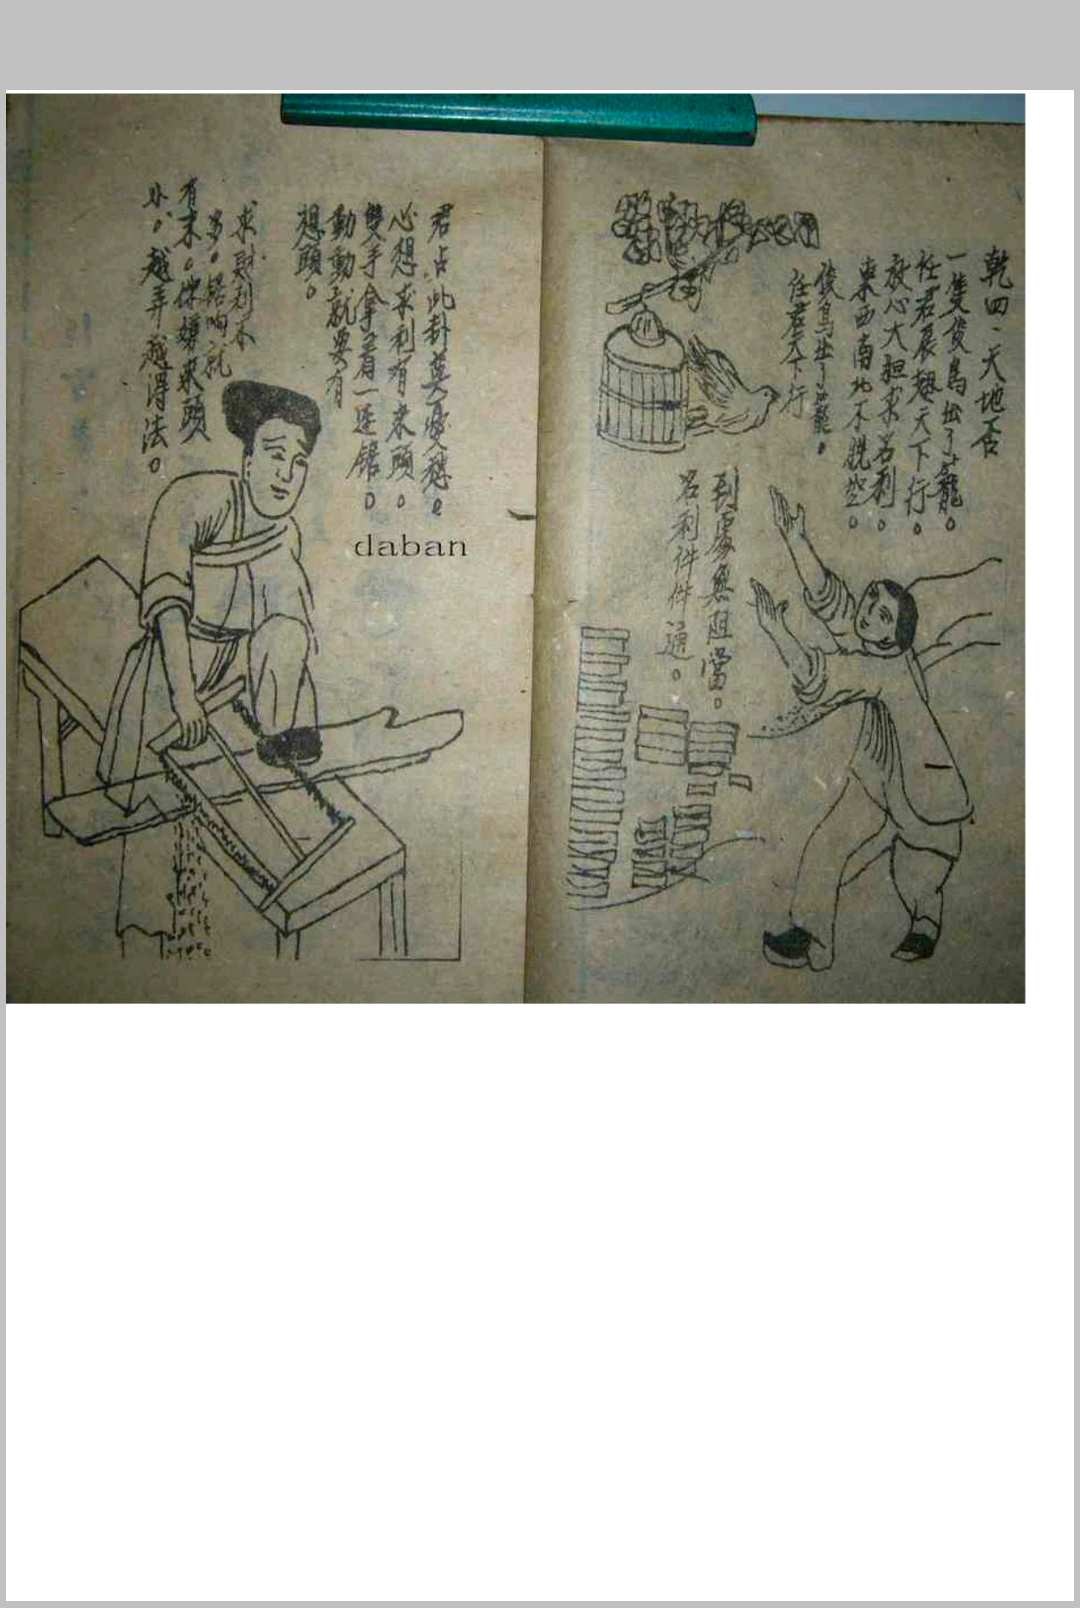 乾四、天地否
一隻俊鳥出了籠。
任君展翅天下行。
放心大担求名利。
東西南北不脱空。
俊鳥出了籠。
任君天下行
到處無阻當。
名利件件通。
君占此卦莫憂愁。
心想求利有来頭。
雙手拿着一连锯。
動動就要有
想頭。
求財利不
多。锯响就
有末。你嫌来頭
小。越弄越得法。
daban